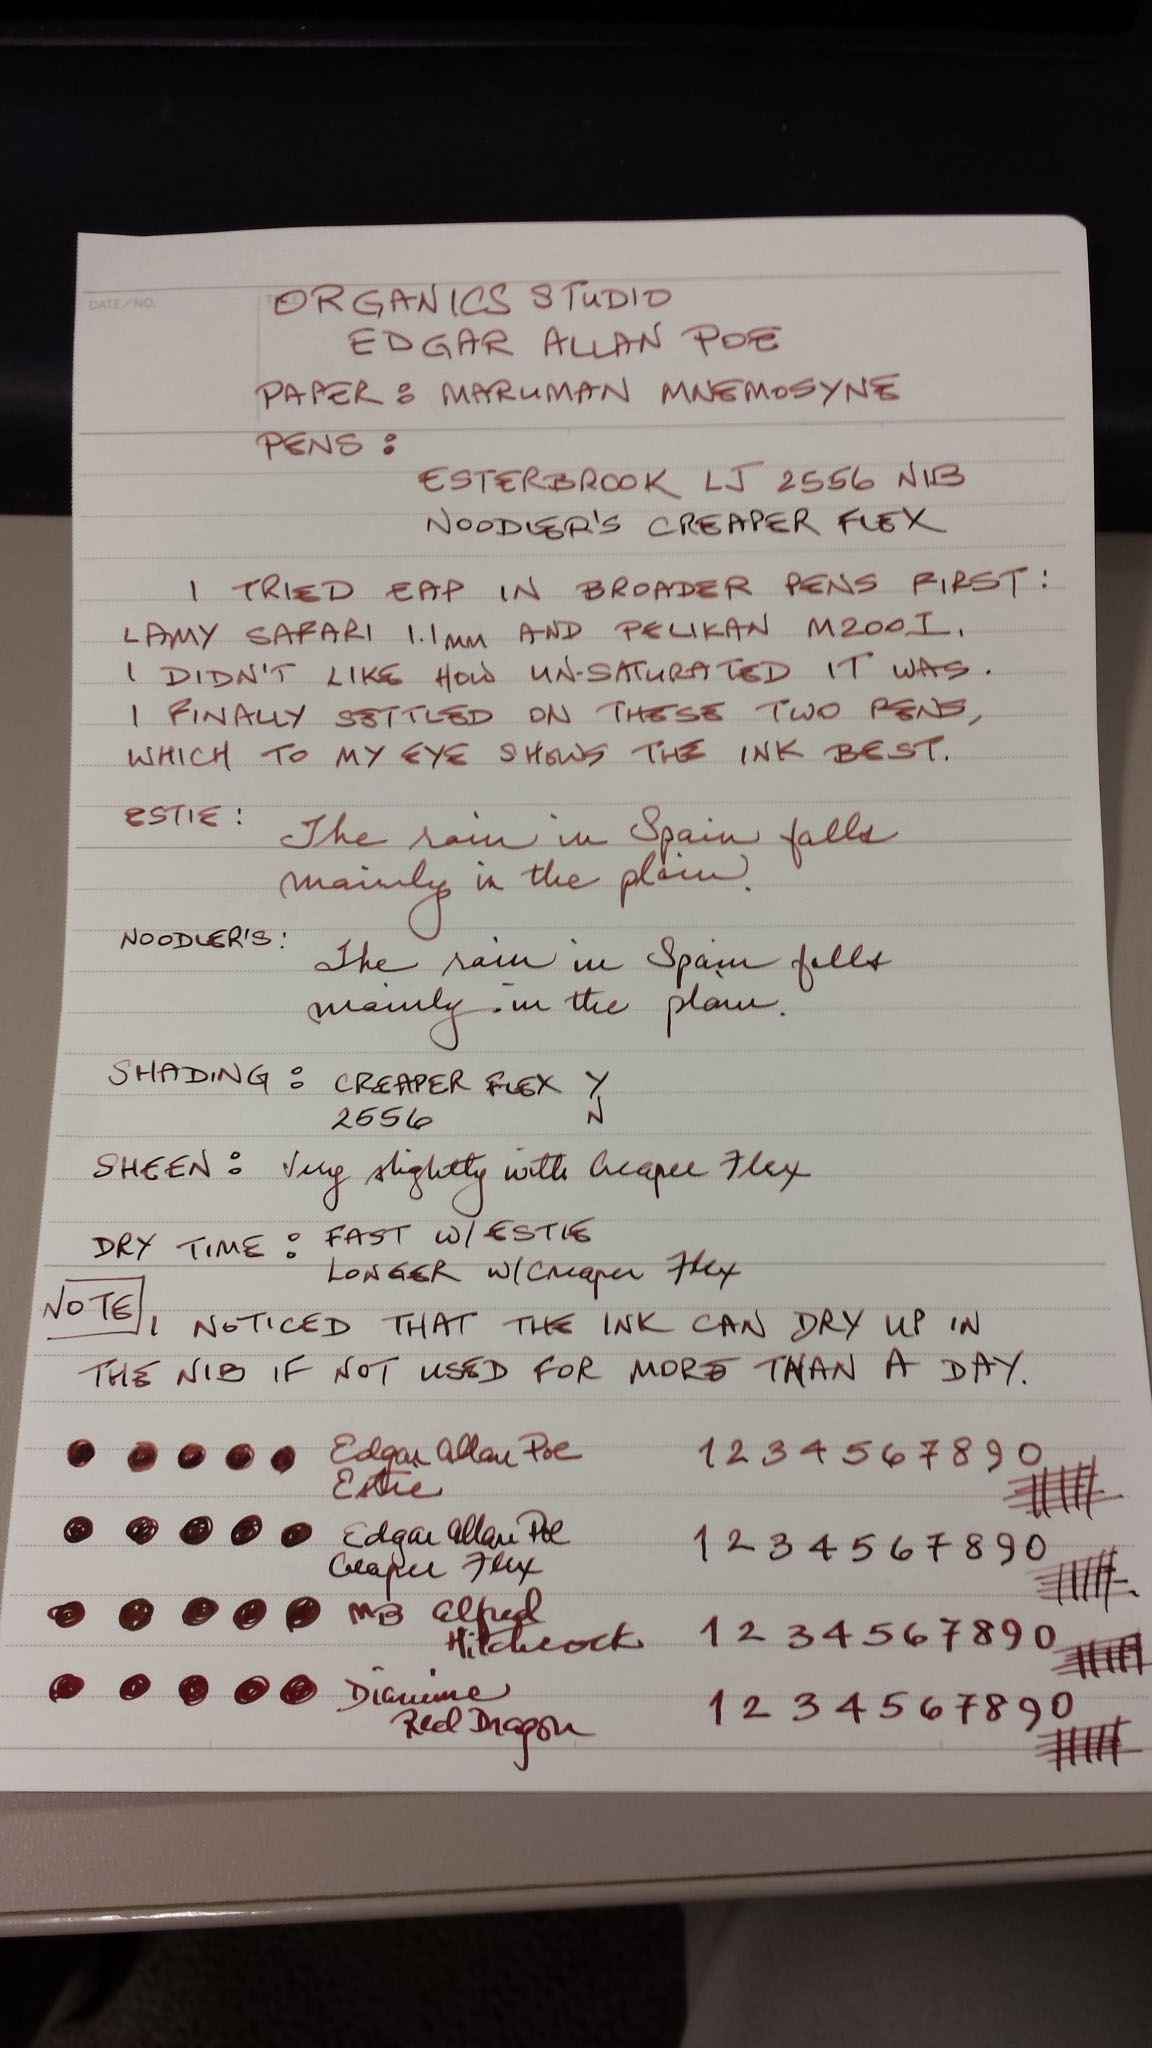 DATE/NO.
ORGANICS STUDIO
EDGAR ALLAN POE
PAPER: MARUMAN MNEMOSYNE
PENS:
ESTERBROOK LJ 2556 NIB
NOODLER'S CREAPER FLEX
I TRIED EAP IN BROADER PENS FIRST:
LAMY SAFARI 1.1mm AND PELIKAN M200I.
I DIDN'T LIKE HOW UN-SATURATED IT WAS.
I FINALLY SETTLED ON THESE TWO PENS,
WHICH TO MY EYE SHOWS THE INK BEST.
ESTIE: The rain in Spain falls
mainly in the plain.
NOODLER'S: The rain in Spain falls
mainly in the plain.
SHADING: CREAPER FLEX Y
2556 N
SHEEN: Very slightly with Creaper Flex
DRY TIME: FAST W/ESTIE
LONGER W/Creaper Flex
NOTE, I NOTICED THAT THE INK CAN DRY UP IN
THE NIB IF NOT USED FOR MORE THAN A DAY.
Edgar Allan Poe 1234567890
Estie
Edgar Allan Poe 1234567890
Creaper Flex
MB Alfred
Hitchcock 1234567890
Diamine
Red Dragon 1234567890